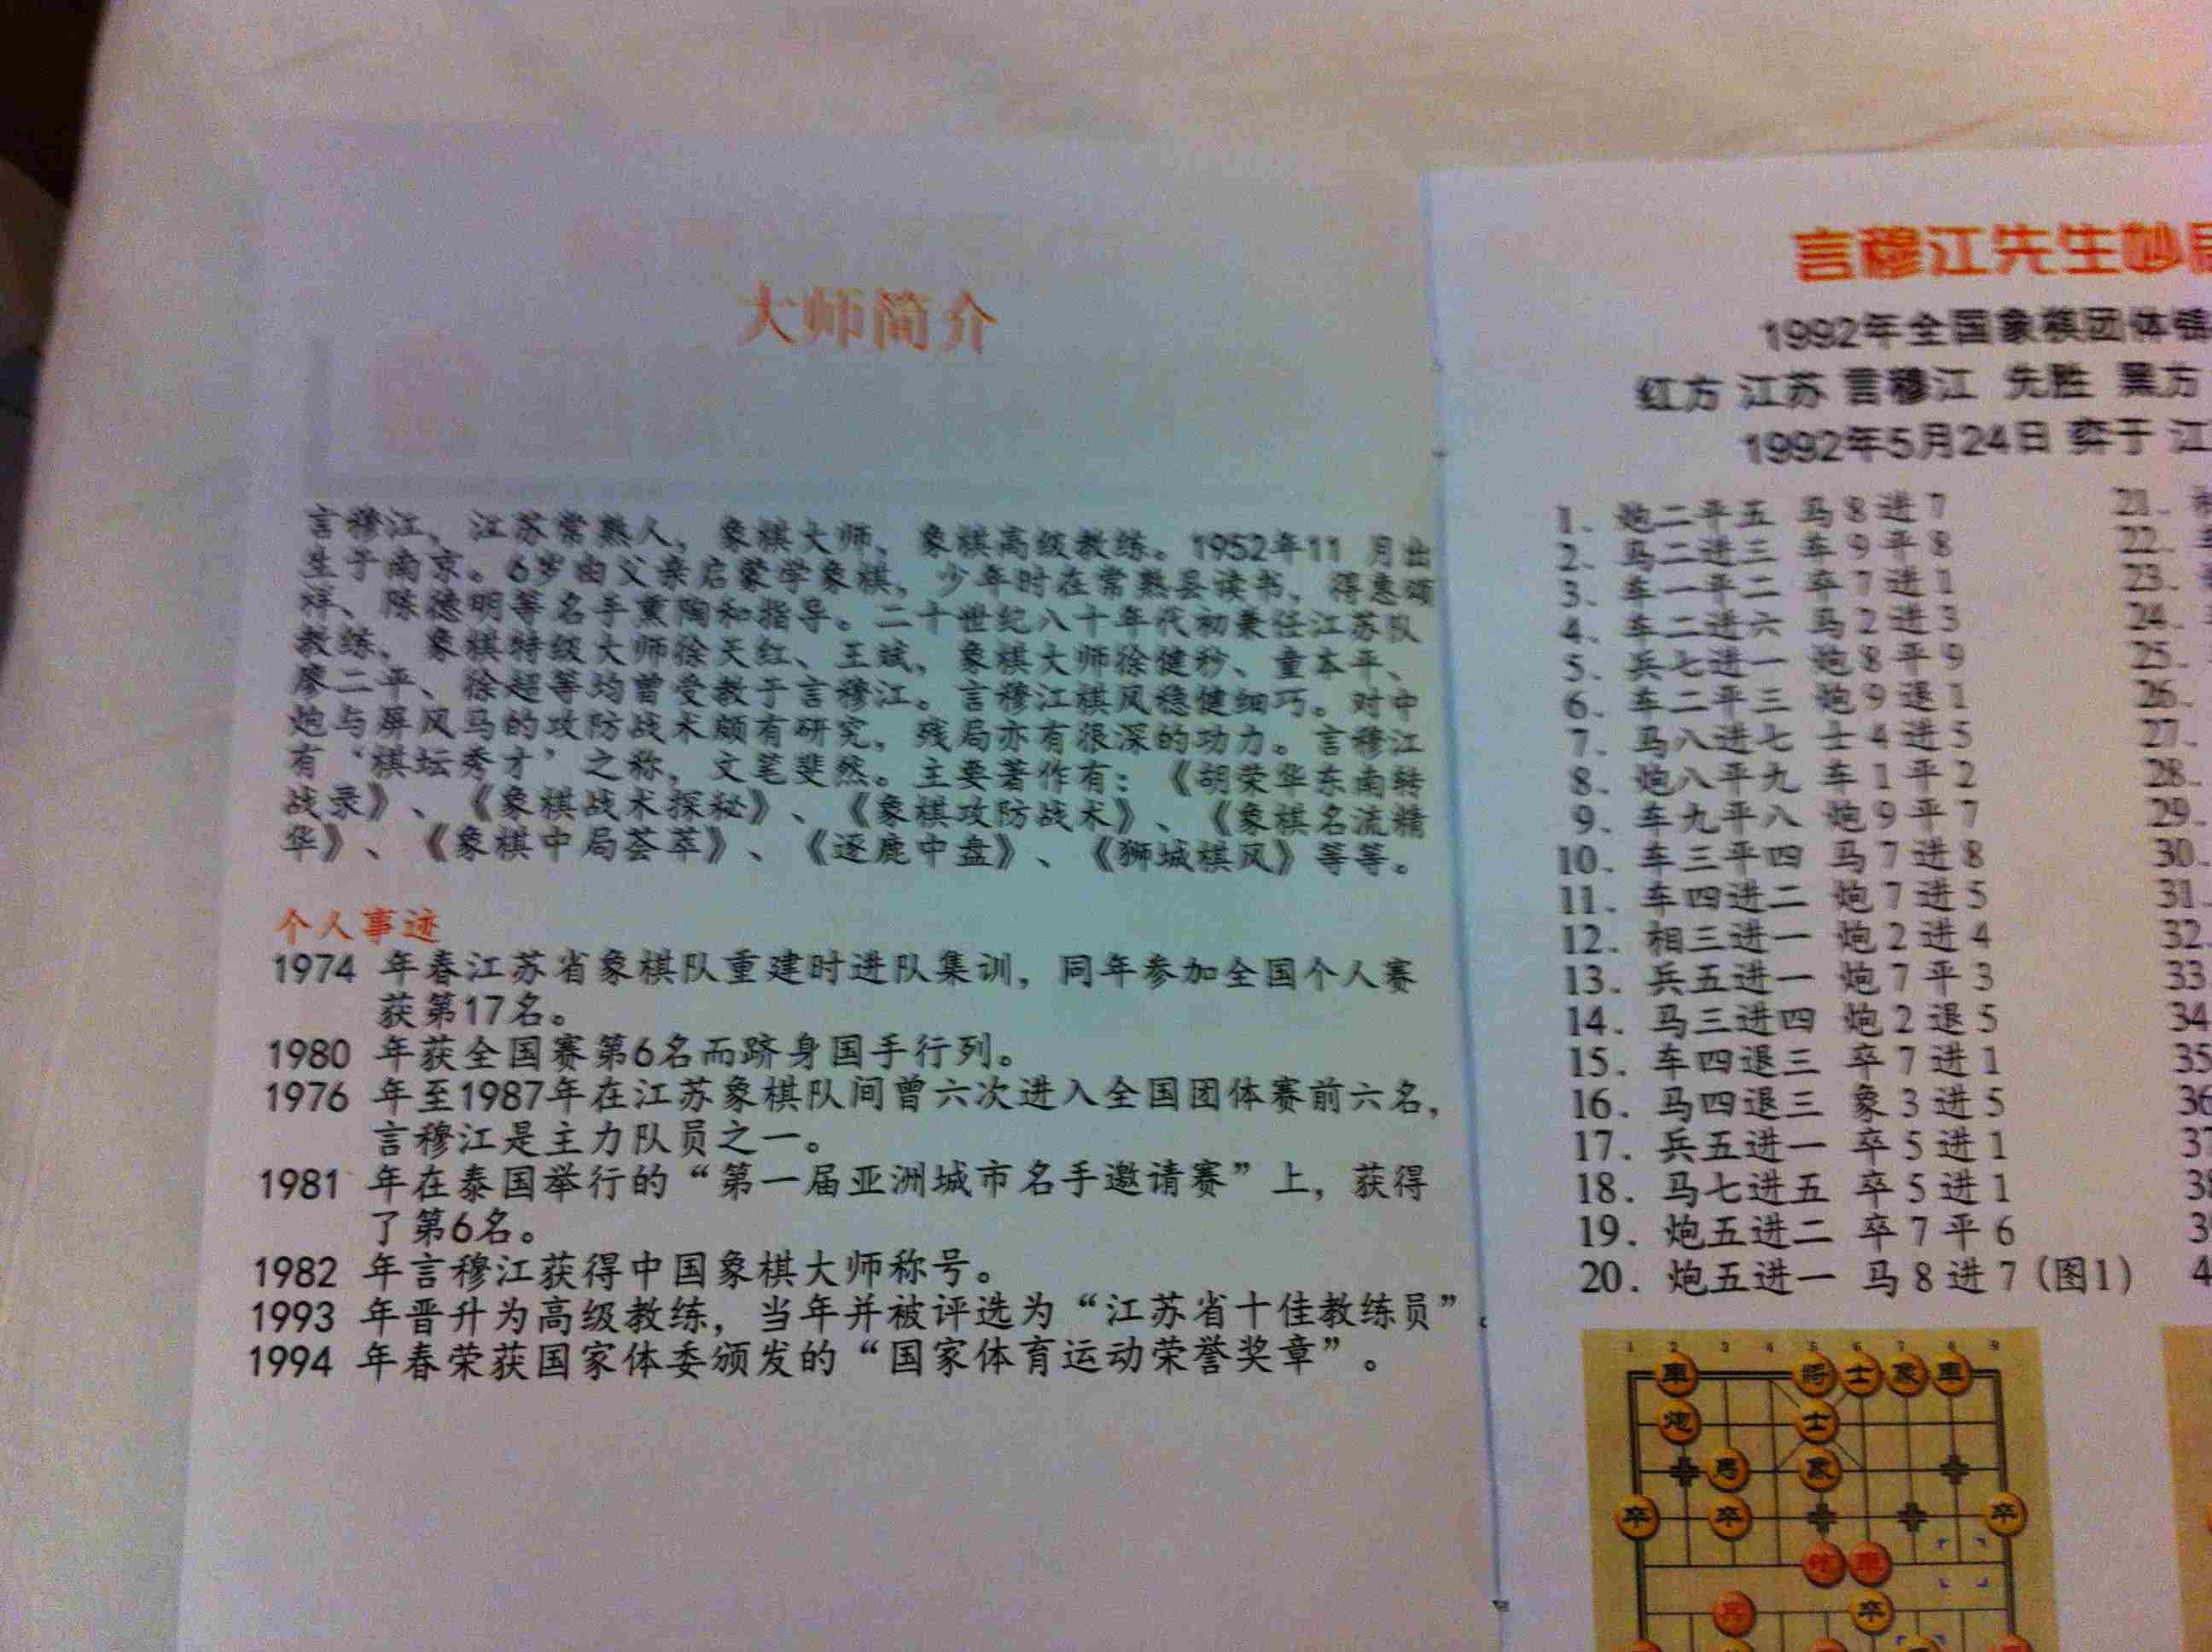 大师简介
言穆江，江苏常熟人，象棋大师，象棋高级教练。1952年11 月出
生于南京。6岁由父亲启蒙学象棋，少年时在常熟县读书，得惠颂
祥、陈德明等名手熏陶和指导。二十世纪八十年代初兼任江苏队
教练，象棋特级大师徐天红、王斌，象棋大师徐健秒、童本平、
廖二平、徐超等均曾受教于言穆江。言穆江棋风稳健细巧。对中
炮与屏风马的攻防战术颇有研究，残局亦有很深的功力。言穆江
有‘棋坛秀才’之称，文笔斐然。主要著作有：《胡荣华东南转
战录》、《象棋战术探秘》、《象棋攻防战术》、《象棋名流精
华》、《象棋中局荟萃》、《逐鹿中盘》、《狮城棋风》等等。
个人事迹
1974 年春江苏省象棋队重建时进队集训，同年参加全国个人赛
获第17名。
1980 年获全国赛第6名而跻身国手行列。
1976 年至1987年在江苏象棋队间曾六次进入全国团体赛前六名，
言穆江是主力队员之一。
1981 年在泰国举行的“第一届亚洲城市名手邀请赛”上，获得
了第6名。
1982 年言穆江获得中国象棋大师称号。
1993 年晋升为高级教练，当年并被评选为“江苏省十佳教练员”
1994 年春荣获国家体委颁发的“国家体育运动荣誉奖章”。
言穆江先生妙
1992年全国象棋团体锦
红方 江苏 言穆江 先胜 黑方
1992年5月24日 弈于 江
1、炮二平五 马8进7
2、马二进三 车9平8
3、车一平二 卒7进1
4、车二进六 马2进3
5、兵七进一 炮8平9
6、车二平三 炮9退1
7、马八进七 士4进5
8、炮八平九 车1平2
9、车九平八 炮9平7
10、车三平四 马7进8
11、车四进二 炮7进5
12、相三进一 炮2进4
13、兵五进一 炮7平3
14、马三进四 炮2退5
15．车四退三 卒7进1
16．马四退三 象3进5
17．兵五进一 卒5进1
18．马七进五 卒5进1
19．炮五进二 卒7平6
20．炮五进一 马8进7（图1）
21.
22.
23.
24.
25.
26.
27.
28.
29.
30.
31.
32.
33
34
35
36
37
1 2 3 4 5 6 7 8 9
車 將 士 象 車
炮 士
馬 象
卒 卒 卒
炮 車
兵 卒